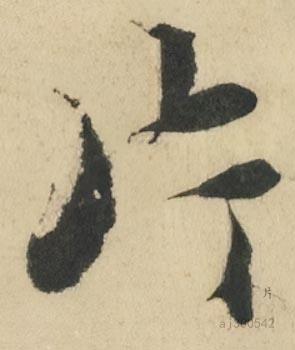 片
片
aj300542